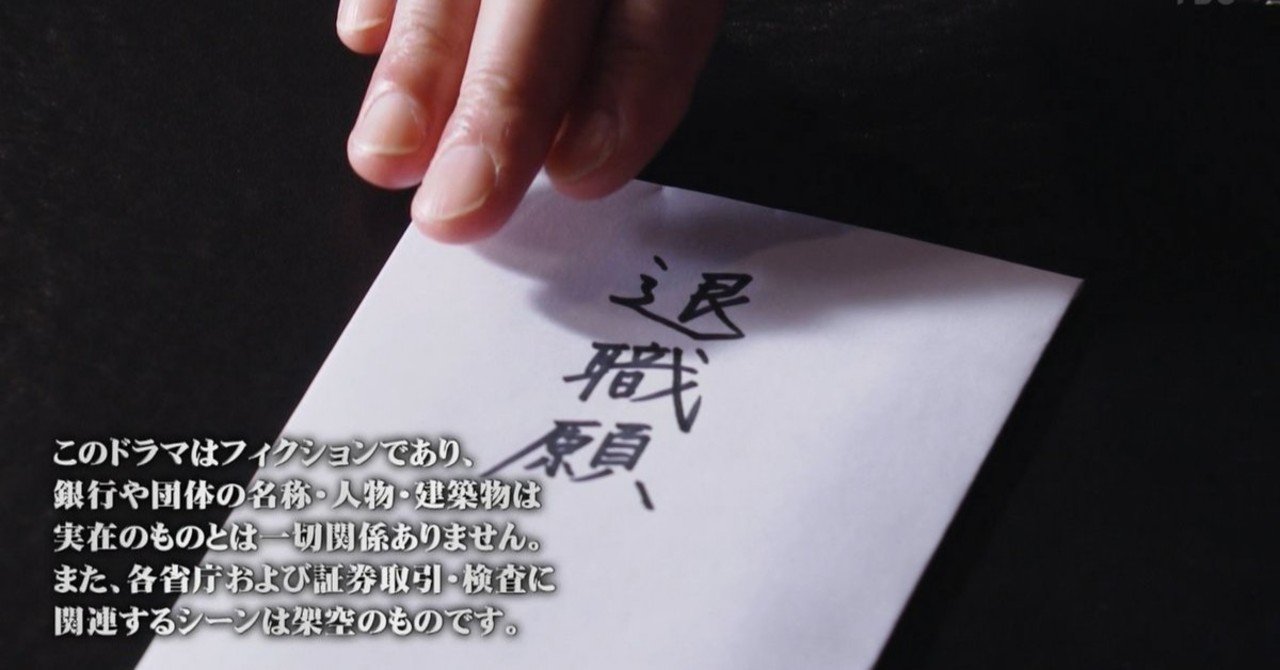 退職願
このドラマはフィクションであり、
銀行や団体の名称・人物・建築物は
実在のものとは一切関係ありません。
また、各省庁および証券取引・検査に
関連するシーンは架空のものです。